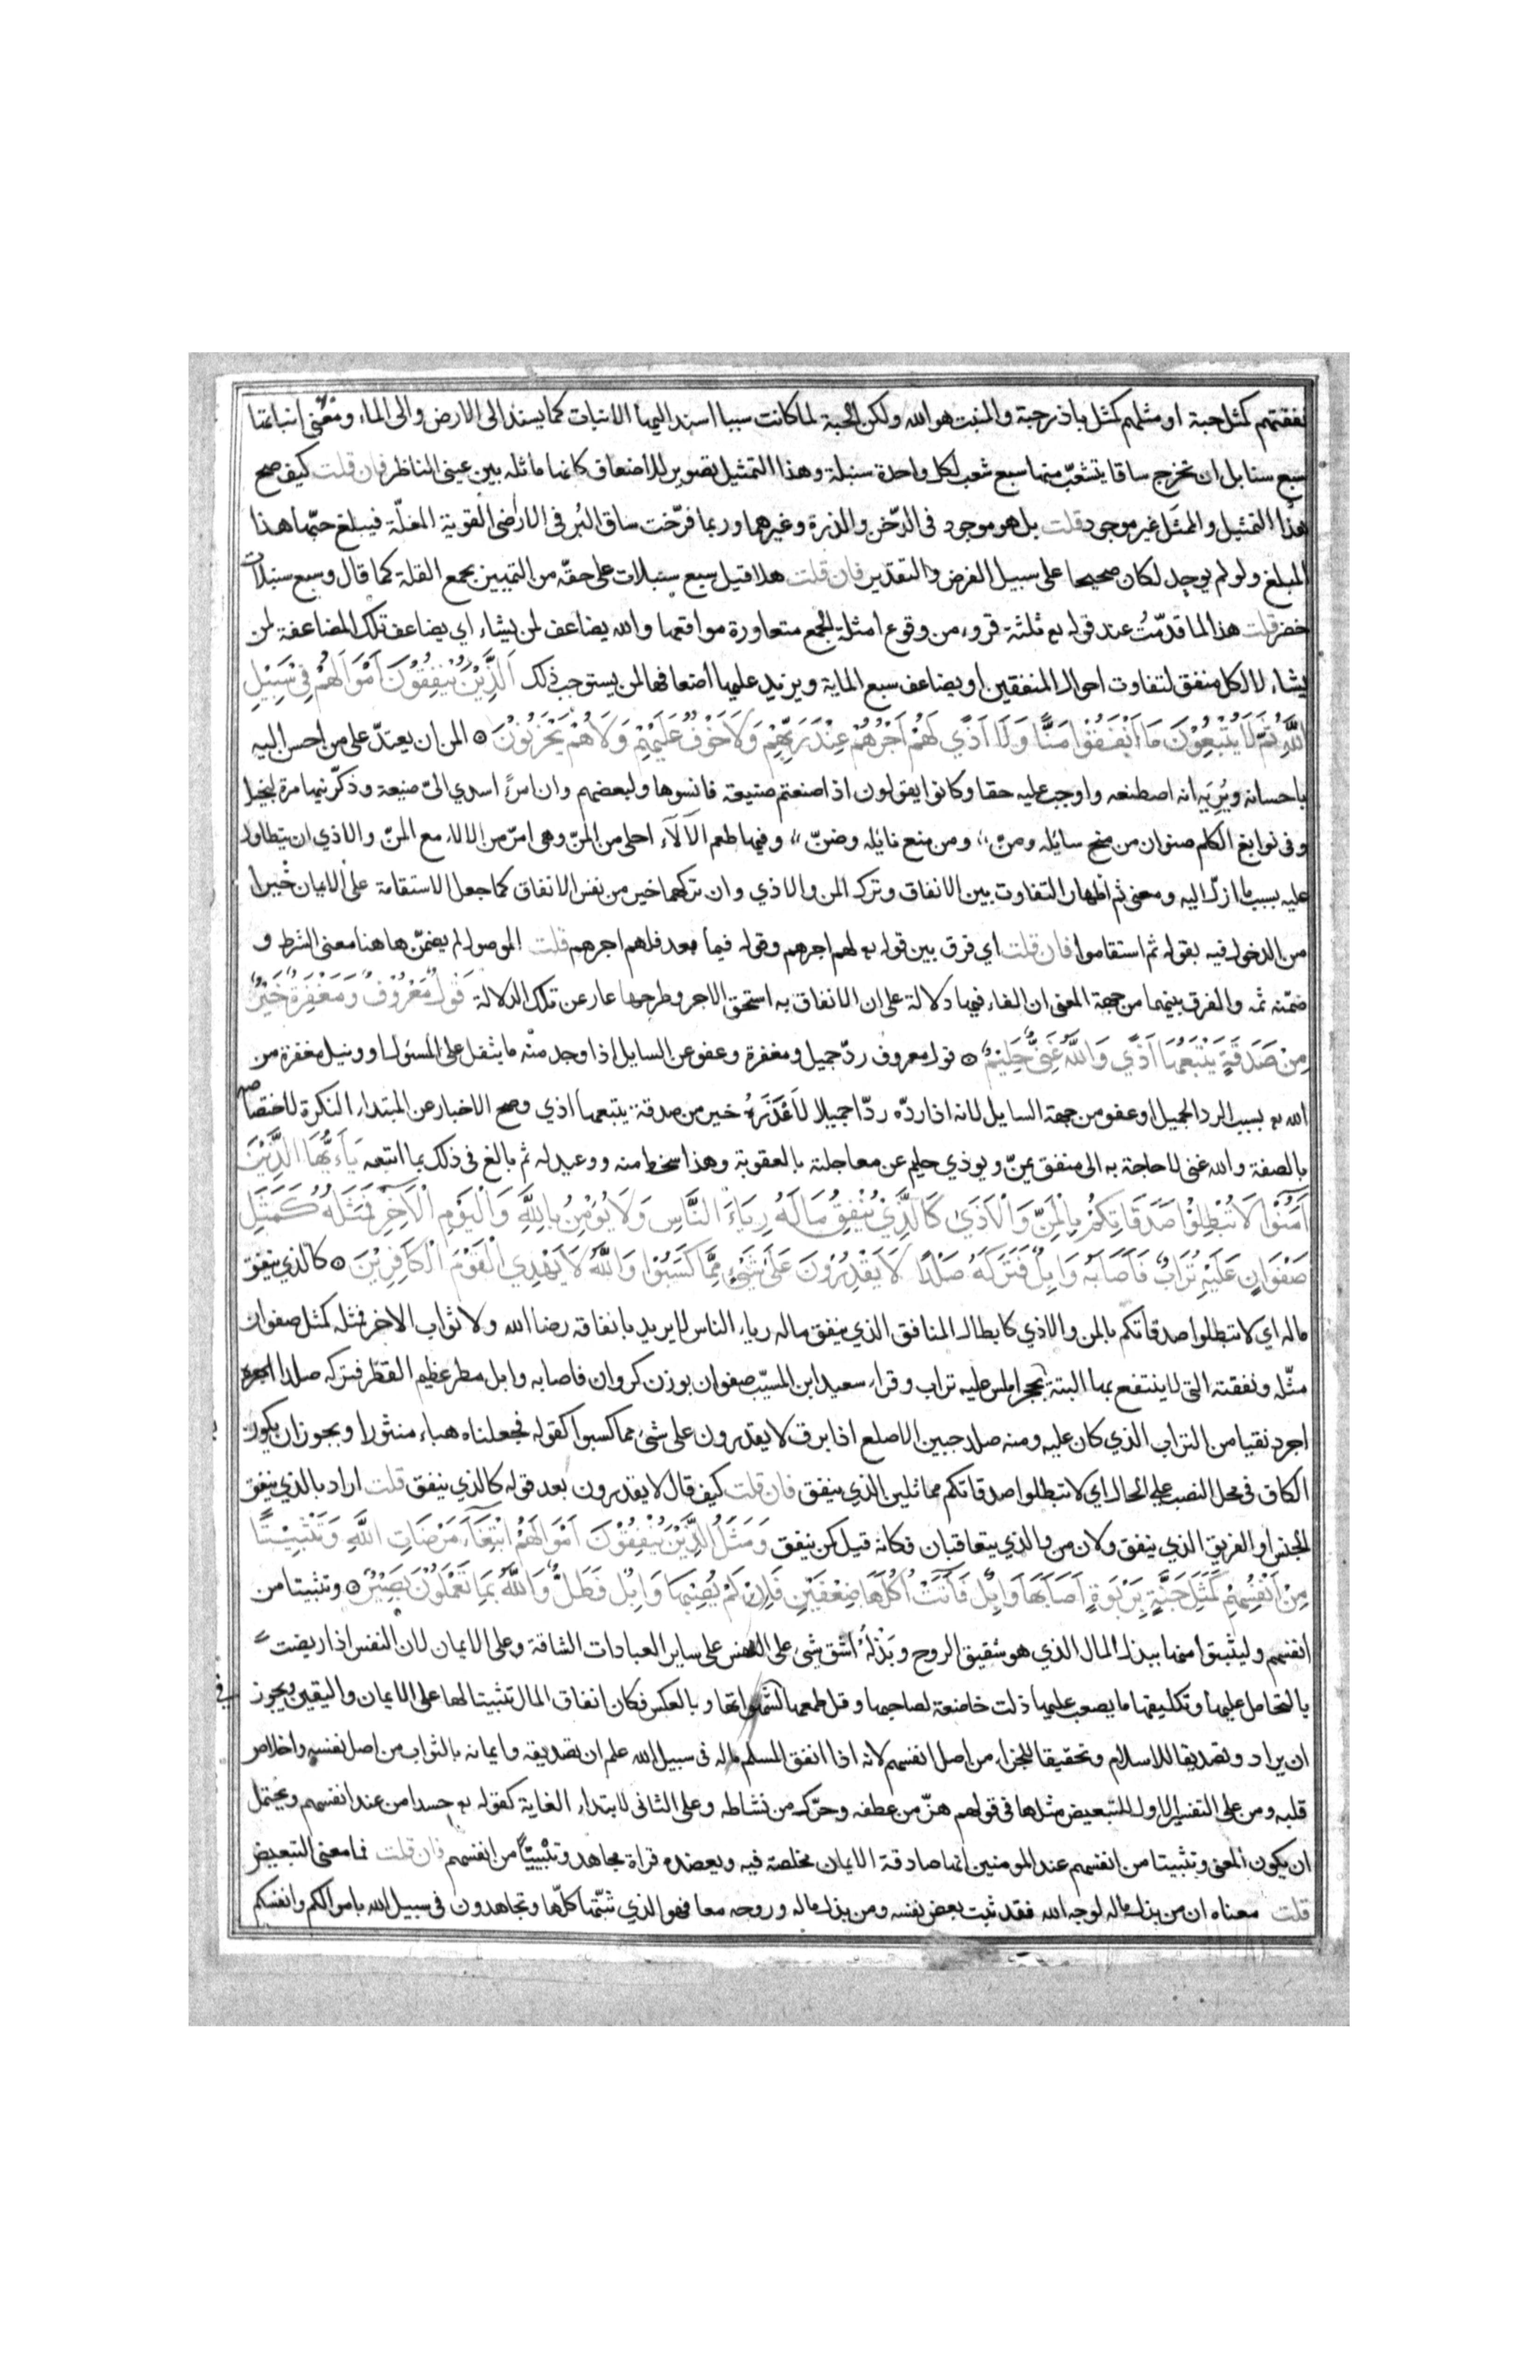 نفقتهم كمثل حبة او مثلهم كمثل باذر حبة والمنبت هو الله ولكن الحبة لما كانت سببا اسند اليها الانبات كما يسند الى الارض والى الماء ومعنى انباتها
سبع سنابل ان تخرج ساقا يتشعب منها سبع شعب لكل واحدة سنبلة وهذا التمثيل تصوير للاضعاف كانها ماثلة بين عينى الناظر فان قلت كيف صح
هذا التمثيل والممثل غير موجود قلت بل هو موجود فى الدخن والذرة وغيرهما وربما فرّخت ساق البُر فى الاراضى القوية المغلّة فيبلغ حبّها هذا
المبلغ ولو لم يوجد لكان صحيحا على سبيل الفرض والتقدير فان قلت هلا قيل سبع سنبلات على حقّه من التمييز بجمع القلة كما قال وسبع سنبلات
خضر قلت هذا لما قدّمتُ عند قوله تع ثلثة قروء من وقوع امثلة الجمع متعاورة مواقعها والله يضاعف لمن يشاء اي يضاعف تلك المضاعفة لمن
يشاء لا لكل منفق لتفاوت احوال المنفقين او يضاعف سبع الماية ويزيد عليها اضعافها لمن يستوجب ذلك اَلَّذِيْنَ يُنْفِقُوْنَ اَمْوَالَهُمْ فِيْ سَبِيْلِ
اللّٰهِ ثُمَّ لَا يُتْبِعُوْنَ مَا اَنْفَقُوْا مَنًّا وَلَا اَذًي لَهُمْ اَجْرُهُمْ عِنْدَ رَبِّهِمْ وَلَا خَوْفٌ عَلَيْهِمْ وَلَا هُمْ يَحْزَنُوْنَ ۝ المن ان يعتدّ على من احسن اليه
باحسانه ويُرِيَه انه اصطنعه واوجب عليه حقا وكانوا يقولون اذا صنعتم صنيعة فانسوها ولبعضهم وان امرءً اسدي الىّ صنيعة وذكّرنيها مرة لبخيل
وفى نوابغ الكلم صنوان من منح سايله ومنّ، ومن منع نايله وضنّ، وفيها طعم الآلاء احلى من المنّ وهى امرّ من الالاء مع المنّ والاذي ان يتطاول
عليه بسبب ما ازلّ اليه ومعنى ثم اظهار التفاوت بين الانفاق وترك المن والاذي وان تركهما خير من نفس الانفاق كما جعل الاستقامة على الايمان خيرا
من الدخول فيه بقوله ثم استقاموا فان قلت اي فرق بين قوله تع لهم اجرهم وقوله فيما بعد فلهم اجرهم قلت الموصول لم يضمّن هاهنا معنى الشرط و
ضمّنه ثمه والفرق بينهما من جهة المعنى ان الفاء فيها دلالة على ان الانفاق به استحق الاجر وطرحها عار عن تلك الدلالة قَوْلٌ مَعْرُوْفٌ وَمَغْفِرَةٌ خَيْرٌ
مِنْ صَدَقَةٍ يَتْبَعُهَا اَذًي وَاللّٰهُ غَنِيٌّ حَلِيْمٌ ۝ قول معروف ردّ جميل ومغفرة وعفو عن السايل اذا وجد منه ما يثقل على المسئول او ونيل مغفرة من
الله تع بسبب الرد الجميل او عفو من جهة السايل لانه اذا ردّه ردّا جميلا لَاَعْذَرَهُ خير من صدقة يتبعها اذي وصح الاخبار عن المبتداء النكرة لاختصاصه
بالصفة والله غنى لا حاجة به الى منفق يمنّ ويوذي حليم عن معاجلته بالعقوبة وهذا سخط منه ووعيد له ثم بالغ فى ذلك بما اتبعه يَآءَيُّهَا الَّذِيْنَ
اٰمَنُوْا لَا تُبْطِلُوْا صَدَقَاتِكُمْ بِالْمَنِّ وَالْاَذَىٰ كَالَّذِيْ يُنْفِقُ مَالَهُ رِيَاءَ النَّاسِ وَلَا يُؤْمِنُ بِاللّٰهِ وَالْيَوْمِ الْاٰخِرِ فَمَثَلُهُ كَمَثَلِ
صَفْوَانٍ عَلَيْهِ تُرَابٌ فَاَصَابَهُ وَابِلٌ فَتَرَكَهُ صَلْدًا لَا يَقْدِرُوْنَ عَلَىٰ شَيْءٍ مِمَّا كَسَبُوْا وَاللّٰهُ لَا يَهْدِي الْقَوْمَ الْكَافِرِيْنَ ۝ كالذي ينفق
ماله اي لا تبطلوا صدقاتكم بالمن والاذي كابطال المنافق الذي ينفق ماله رياء الناس لا يريد بانفاقه رضا الله ولا ثواب الاخر فمثله كمثل صفوان
مثّله ونفقته التى لا ينتفع بها البتة بحجر املس عليه تراب وقراء سعيد ابن المسيّب صفوان بوزن كروان فاصابه وابل مطر عظيم القطر فتركه صلدا اجرد
اجرد نقيا من التراب الذي كان عليه ومنه صلد جبين الاصلع اذا برق لا يقدرون على شئ مما كسبوا كقوله فجعلناه هباء منثورا ويجوز ان يكون
الكاف فى محل النصب على الحال اي لا تبطلوا صدقاتكم مماثلين الذي ينفق فان قلت كيف قال لا يقدرون بعد قوله كالذي ينفق قلت اراد بالذي ينفق
الجنس او الفريق الذي ينفق ولان من والذي يتعاقبان فكانه قيل كمن ينفق وَمَثَلُ الَّذِيْنَ يُنْفِقُوْنَ اَمْوَالَهُمُ ابْتِغَآءَ مَرْضَاتِ اللّٰهِ وَتَثْبِيْتًا
مِنْ اَنْفُسِهِمْ كَمَثَلِ جَنَّةٍ بِرَبْوَةٍ اَصَابَهَا وَابِلٌ فَاٰتَتْ اُكُلَهَا ضِعْفَيْنِ فَاِنْ لَمْ يُصِبْهَا وَابِلٌ فَطَلٌّ وَاللّٰهُ بِمَا تَعْمَلُوْنَ بَصِيْرٌ ۝ وتثبيتا من
انفسهم وليثبتوا منها ببذل المال الذي هو شقيق الروح وبَذْلُهُ اشق شئ على النفس على ساير العبادات الشاقة وعلى الايمان لان النفس اذا ريضت
بالتحامل عليها وتكليفها ما يصعب عليها ذلت خاضعة لصاحبها وقل طمعها لشهواتها وبالعكس فكان انفاق المال تثبيتا لها على الايمان واليقين ويجوز
ان يراد وتصديقا للاسلام وتحقيقا للجزاء من اصل انفسهم لانه اذا انفق المسلم ماله فى سبيل الله علم ان تصديقه وايمانه بالثواب من اصل نفسه واخلاص
قلبه ومن على التفسير الاول للتبعيض مثلها فى قولهم هزّ من عطفه وحرّك من نشاطه وعلى الثانى لابتداء الغاية كقوله تع حسدا من عند انفسهم ويحتمل
ان يكون المعنى وتثبيتا من انفسهم عند المومنين انها صادقة الايمان مخلصة فيه ويعضده قراة مجاهد وتَبْيِينًا من انفسهم فان قلت فما معنى التبعيض
قلت معناه ان من بذل ماله لوجه الله فقد ثبت بعض نفسه ومن بذل ماله وروحه معا فهو الذي ثبّتها كلّها وتجاهدون فى سبيل الله باموالكم وانفسكم